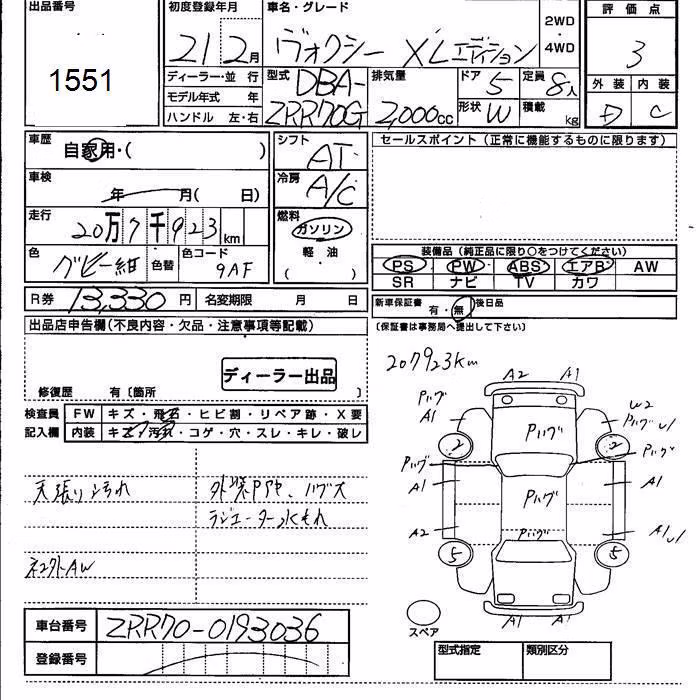 出品番号 初度登録年月 車名・グレード 2WD 評価点
1551 21 2月 ヴォクシー XLエディション ・4WD 3
ディーラー・並 行 型式 DBA- 排気量 ドア 5 定員 8人 外装 内装
モデル年式 年 ZRR70G 2,000cc 形状 W 積載 kg D C
ハンドル 左・右
車歴 自家用・( ) シフト AT セールスポイント (正常に機能するものに限ります)
車検 年 月( 日) 冷房 A/C
走行 20万7千923km 燃料 ガソリン
色 グレー紺 色替 色コード 9AF 軽・油 ( ・ )
装備品(純正品に限り○をつけてください)
PS PW ABS エアB AW
SR ナビ TV カワ
R券 13,330円 名変期限 月 日 新車保証書 有・無 後日品
(保証書は事務局へ提出して下さい)
出品店申告欄(不良内容・欠品・注意事項等記載)
ディーラー出品
修復歴 有〔箇所 〕
207923km
検査員 FW キズ・飛石・ヒビ割・リペア跡・X要
記入欄 内装 キズ・汚れ・コゲ・穴・スレ・キレ・破レ
天張り汚れ 外装P
ラジエーター水もれ
ネコ外AW
A2 A1
Pハゲ A1 Pハゲ W2 Pハゲ U1
2 2
Pハゲ Pハゲ
A1 Pハゲ A1
A2 Pハゲ A1 U1
5 5
A1 A1
スペア
車台番号 ZRR70-0193036
登録番号
型式指定 類別区分